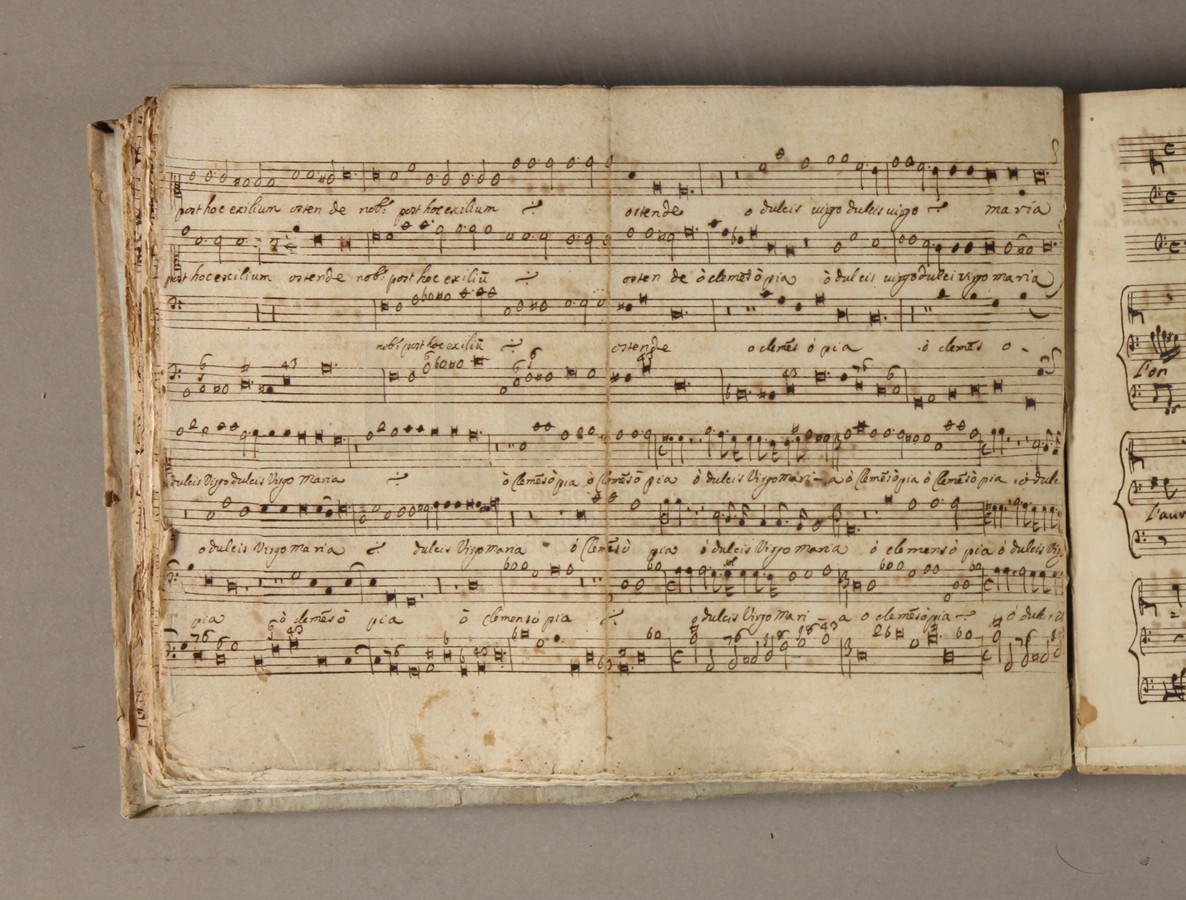 post hoc exilium osten de nobis post hoc exilium ostende o dulcis virgo dulcis virgo maria
post hoc exilium ostende nobis post hoc exiliū osten de ò clemēs ò pia ò dulcis virgo dulcis virgo maria
nobis post hoc exiliū ostende o clemēs ò pia ò clemēs o
6 6 43 6 6 43 43 76 6
dulcis Virgo dulcis Virgo Maria ò Clemēs ò pia ò Clemēs ò pia ò dulcis Virgo Mari a ò Clemēs ò pia ò Clemēs ò pia ò dulc
o dulcis Virgo maria dulcis Virgo Maria ò Clemēs ò pia ò dulcis Virgo Maria ò clemens ò pia ò dulcis Virg
pia ò clemēs ò pia ò clemens ò pia o dulcis Virgo Mari a o clemēs ò pia ò dulcis
76 6 6 43 76 6 6 6 76 43 6 6 76
L'on
L'aur